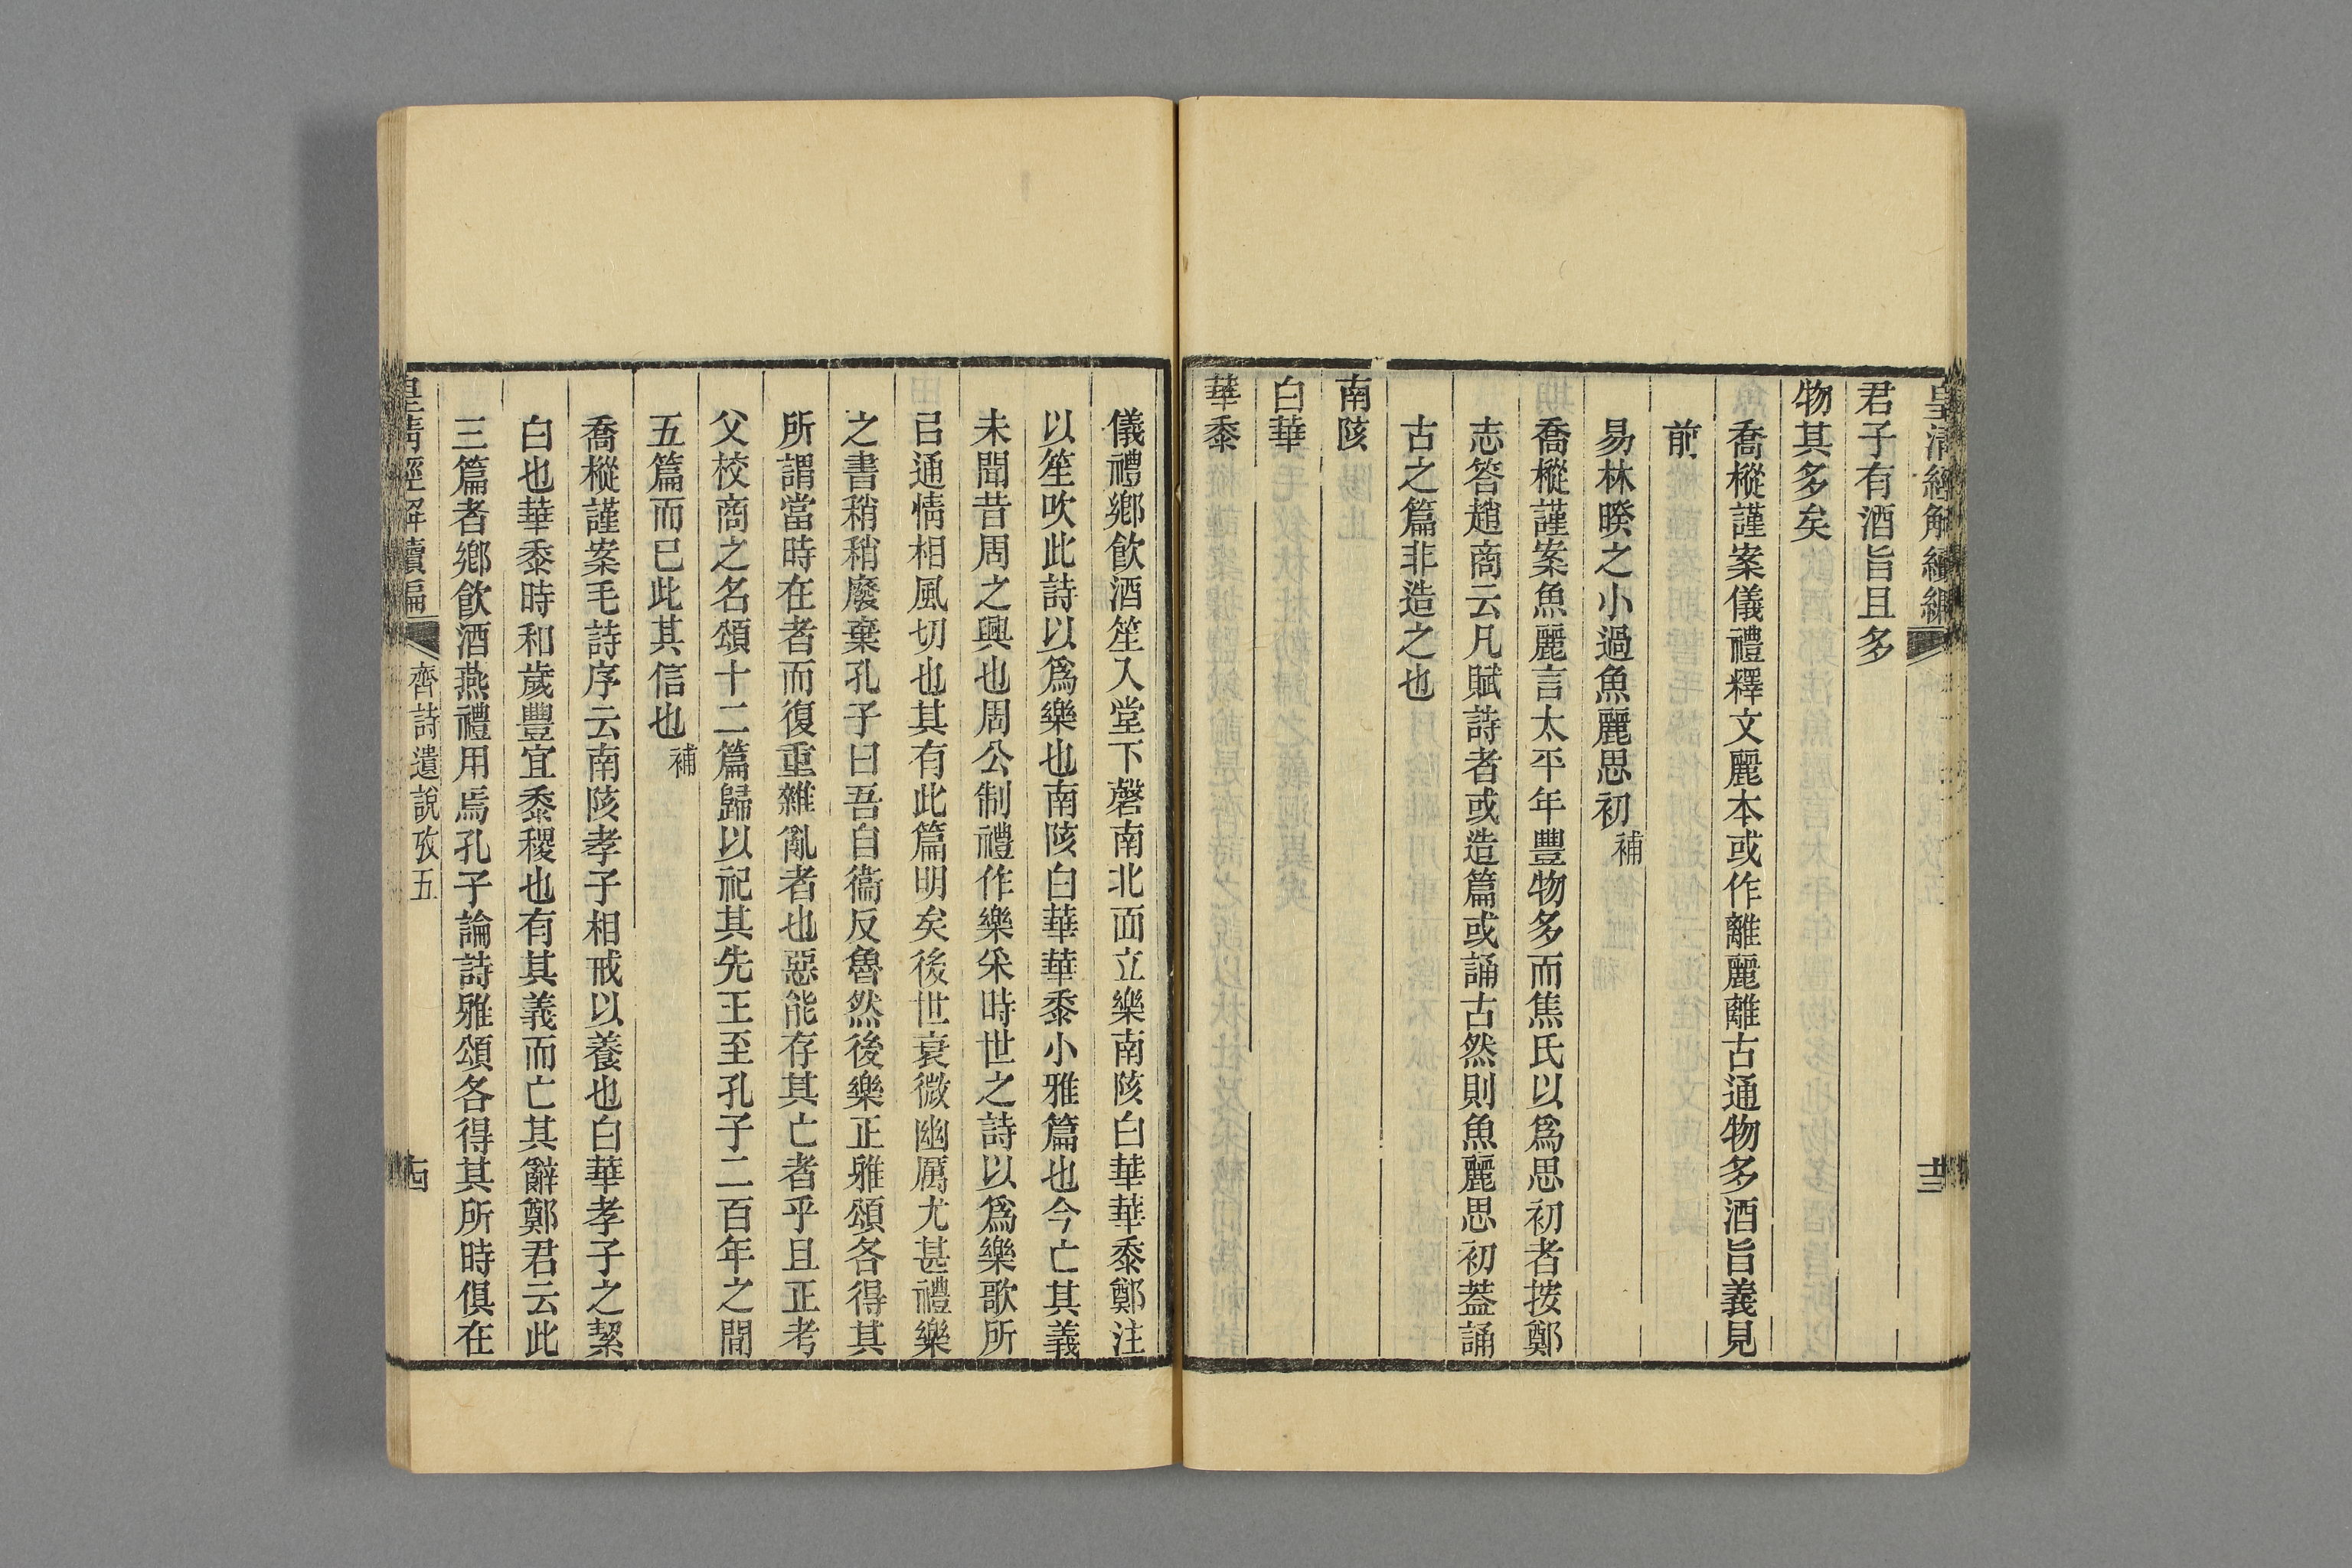 皇清經解續編
十三
君子有酒旨且多
物其多矣
喬樅謹案儀禮釋文麗本或作離麗離古通物多酒旨義見
前
易林暌之小過魚麗思初補
喬樅謹案魚麗言太平年豐物多而焦氏以爲思初者按鄭
志答趙商云凡賦詩者或造篇或誦古然則魚麗思初葢誦
古之篇非造之也
南陔
白華
華黍
儀禮鄉飮酒笙入堂下磬南北面立樂南陔白華華黍鄭注
以笙吹此詩以爲樂也南陔白華華黍小雅篇也今亡其義
未聞昔周之興也周公制禮作樂采時世之詩以爲樂歌所
㠯通情相風切也其有此篇明矣後世衰微幽厲尤甚禮樂
之書稍稍廢棄孔子曰吾自衞反魯然後樂正雅頌各得其
所謂當時在者而復重雜亂者也惡能存其亡者乎且正考
父校商之名頌十二篇歸以祀其先王至孔子二百年之閒
五篇而已此其信也補
喬樅謹案毛詩序云南陔孝子相戒以養也白華孝子之絜
白也華黍時和歲豐宜黍稷也有其義而亡其辭鄭君云此
三篇者鄉飮酒燕禮用焉孔子論詩雅頌各得其所時俱在
皇清經解續編
齊詩遺說攷五
十四